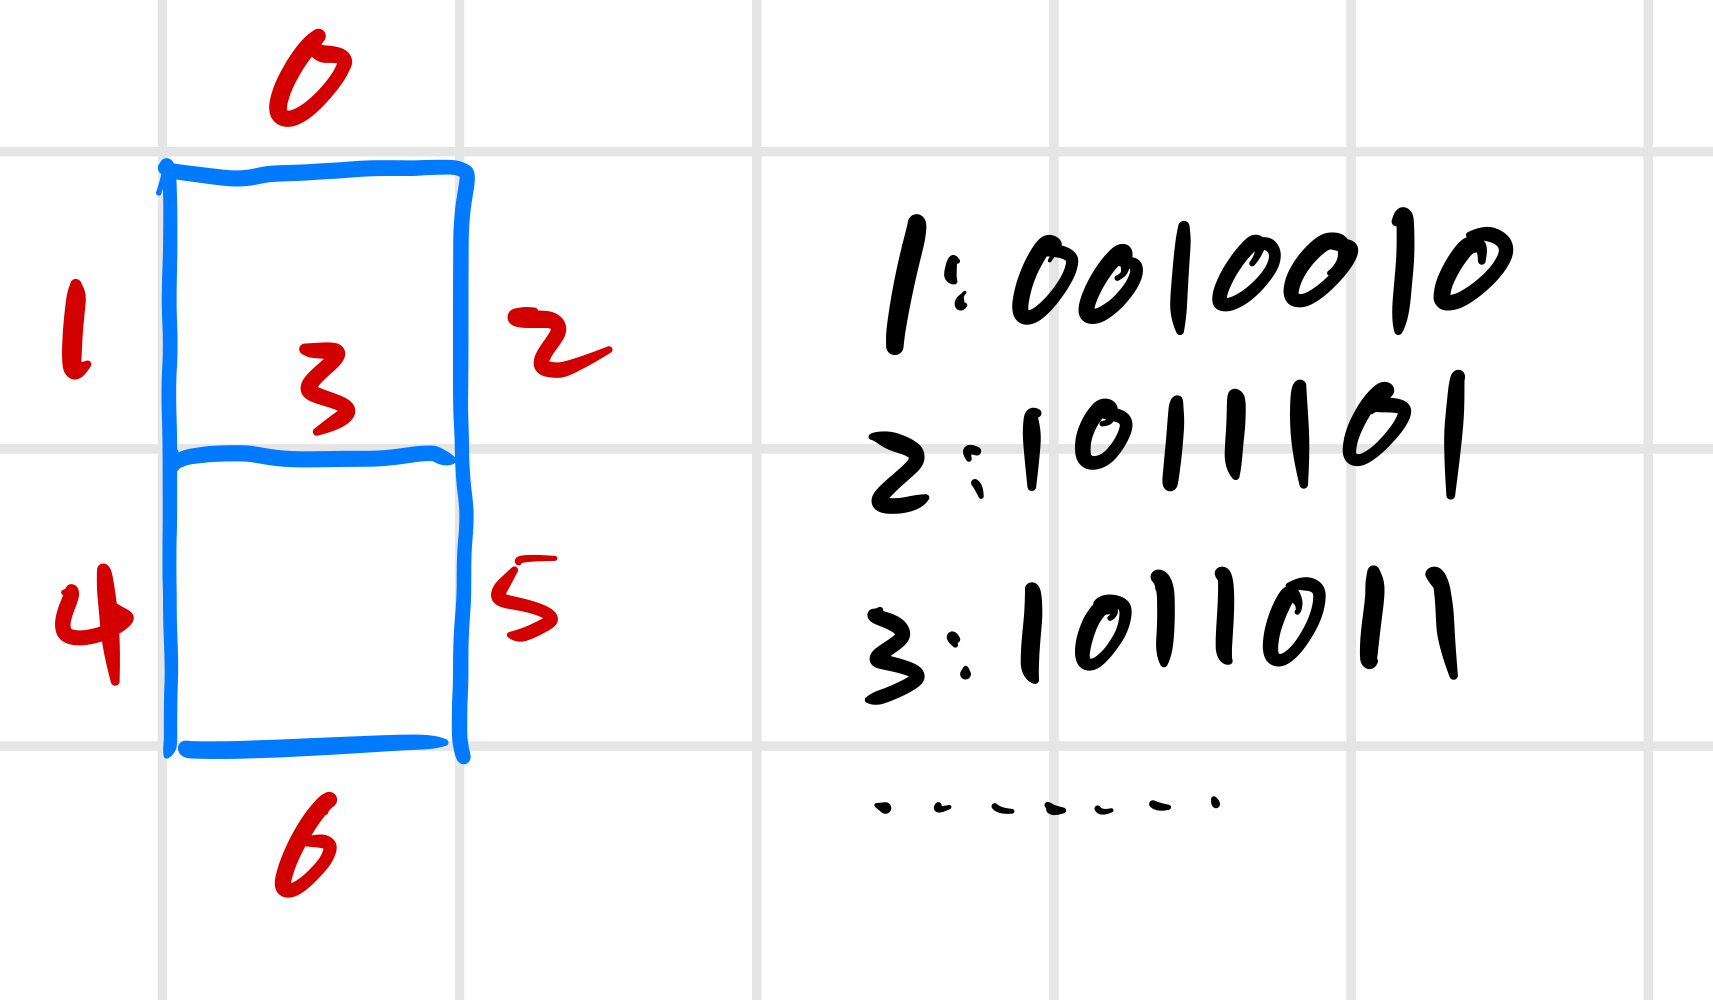 0
1
2
3
4
5
6
1:0010010
2:1011101
3:1011011
.......